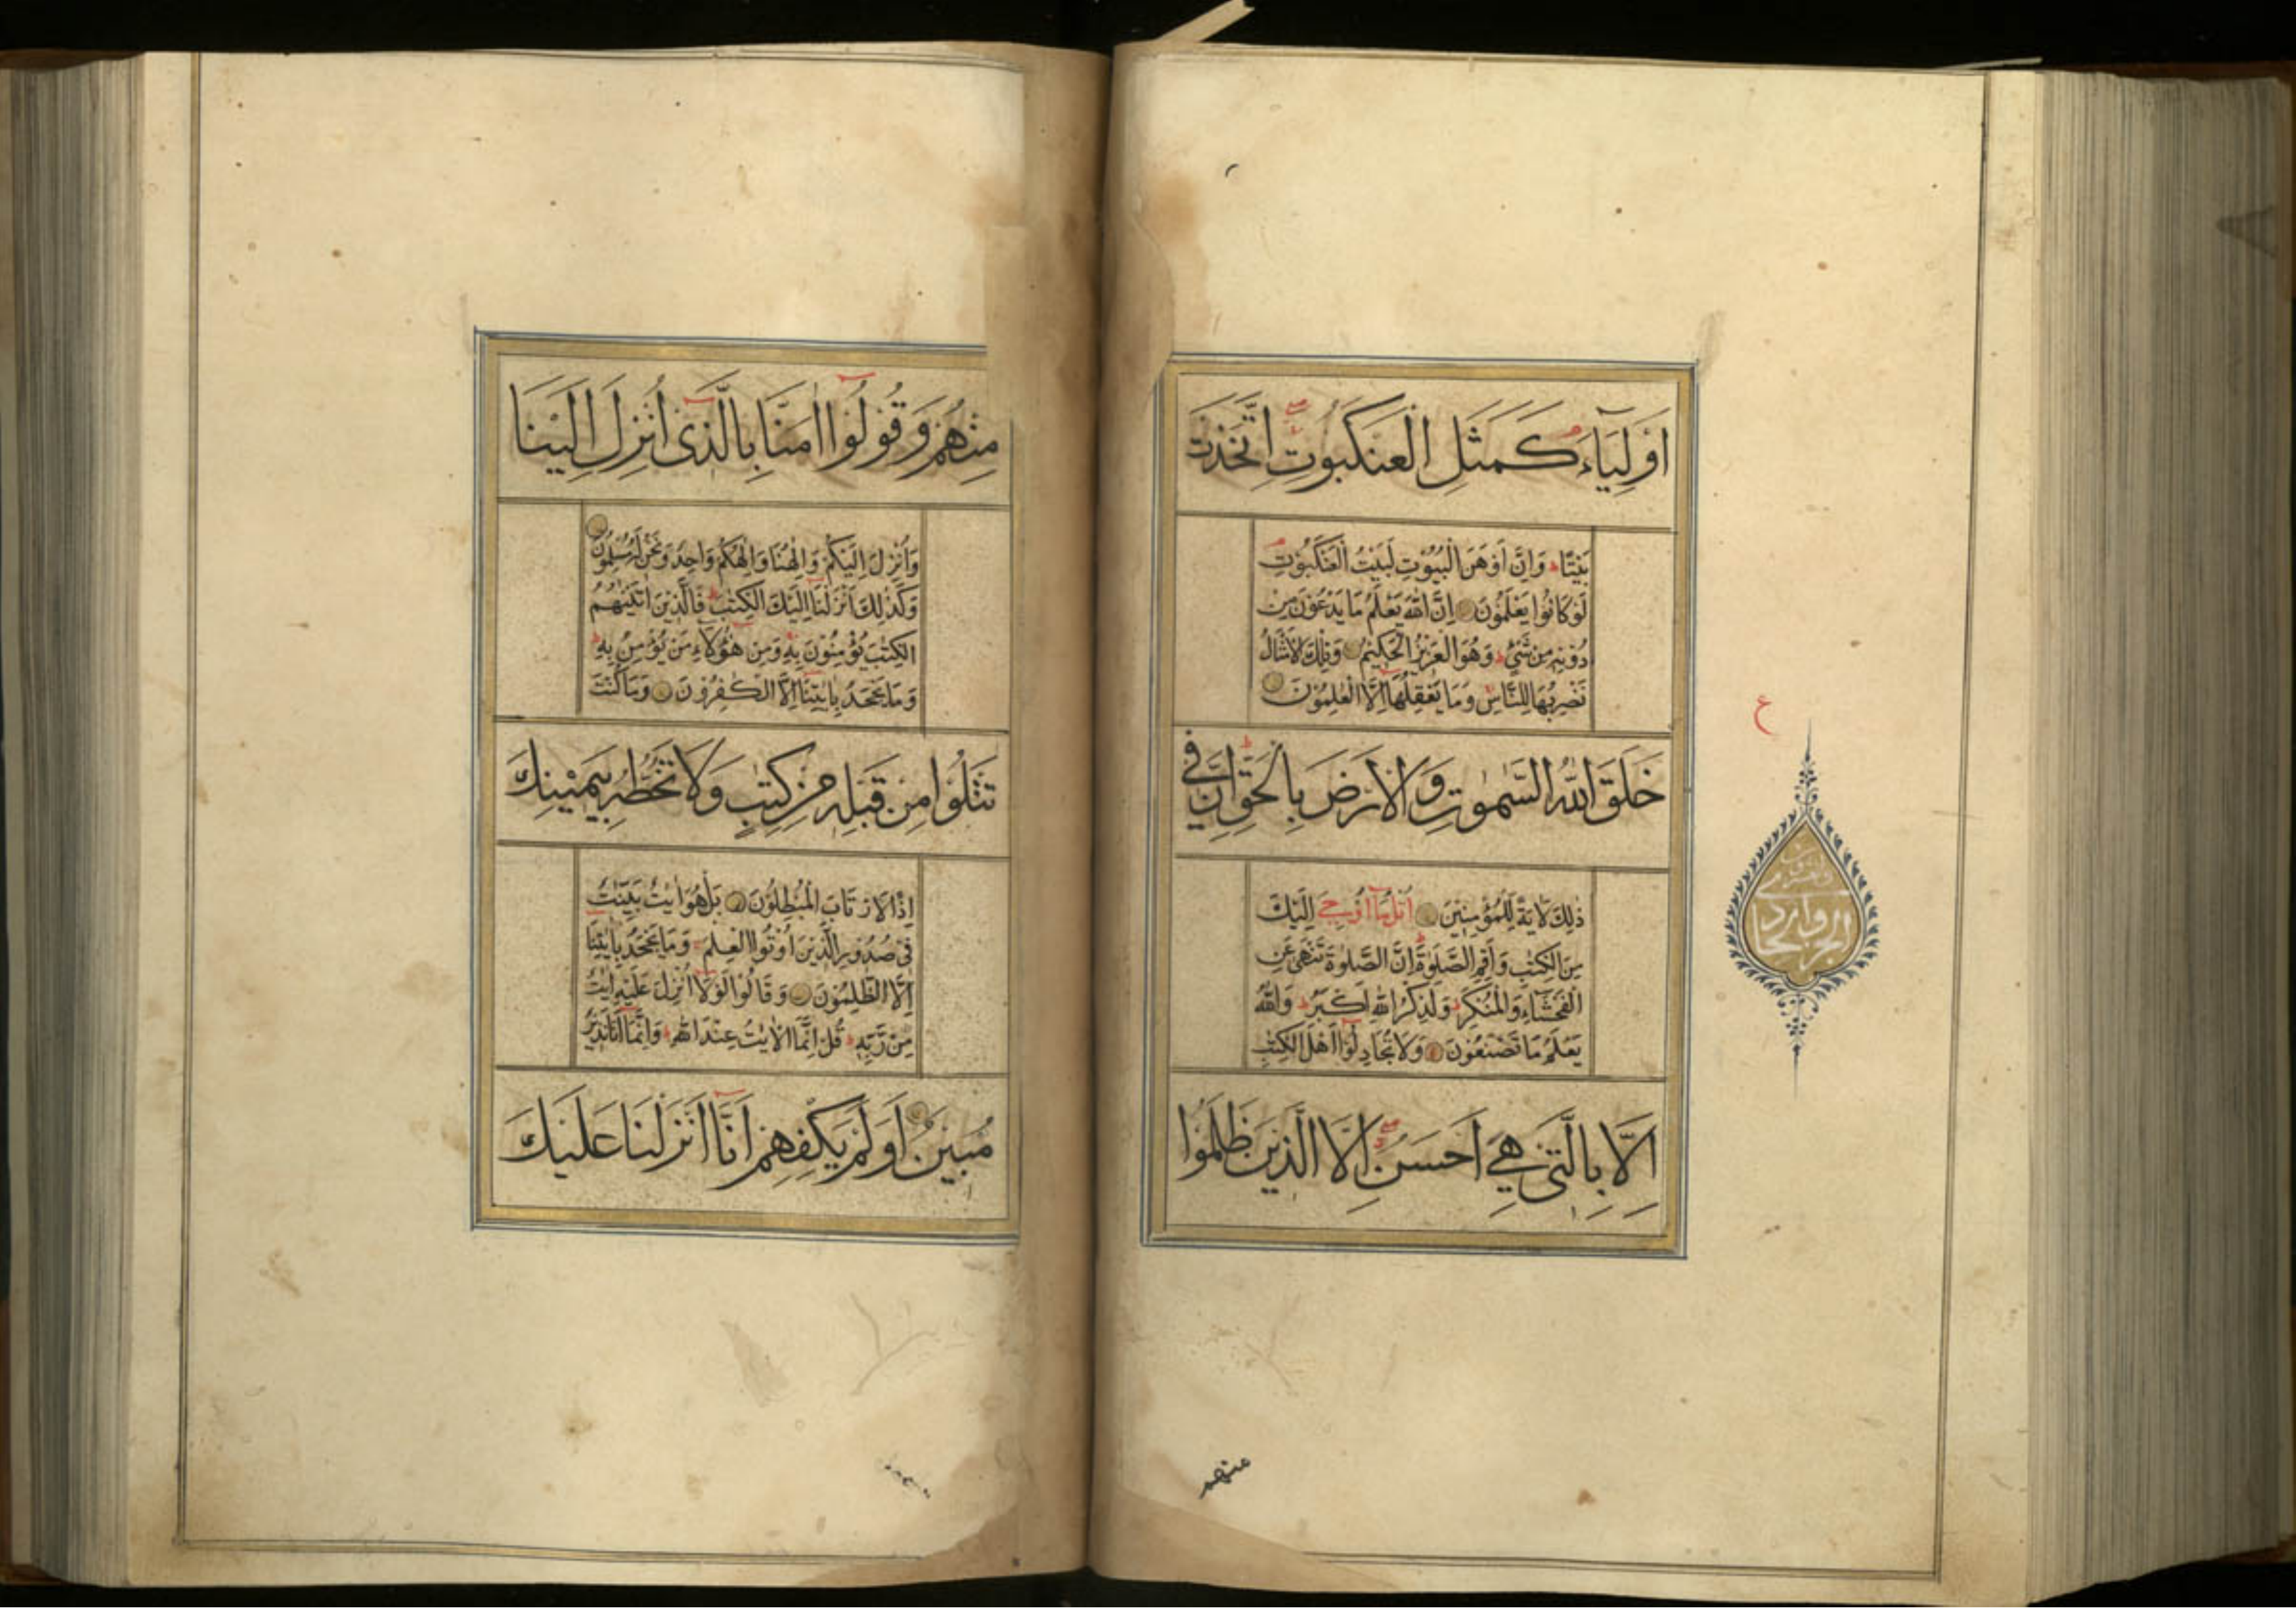 اَوْلِيَآءَ كَمَثَلِ الْعَنْكَبُوتِ اتَّخَذَتْ
بَيْتًا وَاِنَّ اَوْهَنَ الْبُيُوْتِ لَبَيْتُ الْعَنْكَبُوْتِ
لَوْ كَانُوْا يَعْلَمُوْنَ اِنَّ اللّٰهَ يَعْلَمُ مَا يَدْعُوْنَ مِنْ
دُوْنِهٖ مِنْ شَيْءٍ وَهُوَ الْعَزِيْزُ الْحَكِيْمُ وَتِلْكَ الْاَمْثَالُ
نَضْرِبُهَا لِلنَّاسِ وَمَا يَعْقِلُهَا اِلَّا الْعٰلِمُوْنَ
خَلَقَ اللّٰهُ السَّمٰوٰتِ وَالْاَرْضَ بِالْحَقِّ اِنَّ فِي
ذٰلِكَ لَاٰيَةً لِلْمُؤْمِنِيْنَ اُتْلُ مَآ اُوْحِيَ اِلَيْكَ
مِنَ الْكِتٰبِ وَاَقِمِ الصَّلٰوةَ اِنَّ الصَّلٰوةَ تَنْهٰى عَنِ
الْفَحْشَآءِ وَالْمُنْكَرِ وَلَذِكْرُ اللّٰهِ اَكْبَرُ وَاللّٰهُ
يَعْلَمُ مَا تَصْنَعُوْنَ وَلَا تُجَادِلُوْٓا اَهْلَ الْكِتٰبِ
اِلَّا بِالَّتِيْ هِيَ اَحْسَنُ اِلَّا الَّذِيْنَ ظَلَمُوْا
ع
الجزو الحادي
والعشرون
منهم
مِنْهُمْ وَقُوْلُوْٓا اٰمَنَّا بِالَّذِيْٓ اُنْزِلَ اِلَيْنَا
وَاُنْزِلَ اِلَيْكُمْ وَاِلٰهُنَا وَاِلٰهُكُمْ وَاحِدٌ وَنَحْنُ لَهٗ مُسْلِمُوْنَ
وَكَذٰلِكَ اَنْزَلْنَآ اِلَيْكَ الْكِتٰبَ فَالَّذِيْنَ اٰتَيْنٰهُمُ
الْكِتٰبَ يُؤْمِنُوْنَ بِهٖ وَمِنْ هٰٓؤُلَآءِ مَنْ يُؤْمِنُ بِهٖ
وَمَا يَجْحَدُ بِاٰيٰتِنَآ اِلَّا الْكٰفِرُوْنَ وَمَا كُنْتَ
تَتْلُوْا مِنْ قَبْلِهٖ مِنْ كِتٰبٍ وَلَا تَخُطُّهٗ بِيَمِيْنِكَ
اِذًا لَارْتَابَ الْمُبْطِلُوْنَ بَلْ هُوَ اٰيٰتٌ بَيِّنٰتٌ
فِيْ صُدُوْرِ الَّذِيْنَ اُوْتُوا الْعِلْمَ وَمَا يَجْحَدُ بِاٰيٰتِنَآ
اِلَّا الظّٰلِمُوْنَ وَقَالُوْا لَوْلَآ اُنْزِلَ عَلَيْهِ اٰيٰتٌ
مِنْ رَبِّهٖ قُلْ اِنَّمَا الْاٰيٰتُ عِنْدَ اللّٰهِ وَاِنَّمَآ اَنَا نَذِيْرٌ
مُبِيْنٌ اَوَلَمْ يَكْفِهِمْ اَنَّآ اَنْزَلْنَا عَلَيْكَ